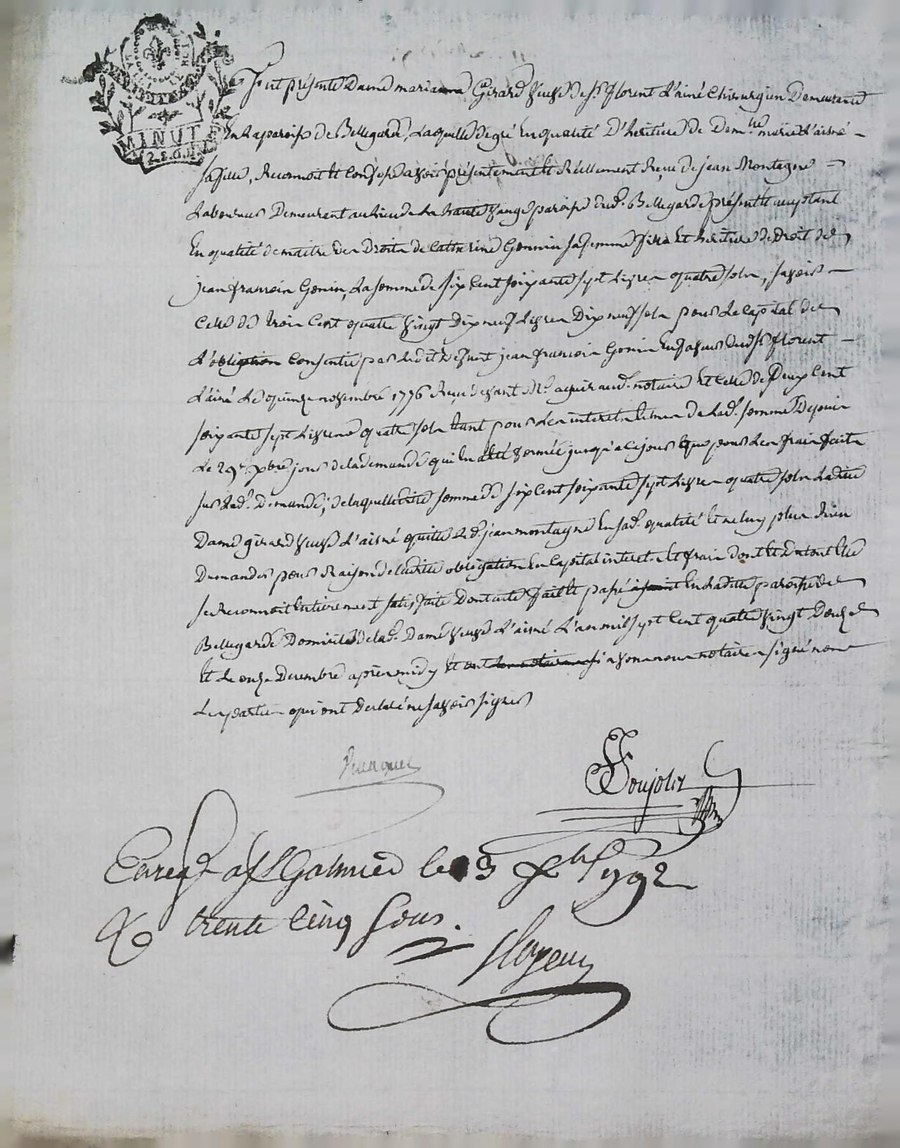 MINUTE
2. S. 6. D
Fut présente Dame marianne Girard veuve de Sr. florent L'ainé Chirurgien Demeurant
En la paroisse de Bellegarde, Laquelle de gré En qualité D'heritiere de Demlle. marie L'aisné
sa fille, Reconnoit Et Confesse avoir présentement Et Réellement Reçu de jean Montagne
Laboureur Demeurant au lieu de La haute paroisse dud. Bellegarde présent Et acceptant
En qualité de maitre des Droits de Catherine Gonin sa femme Et heritiere de Droit de
jean francois Gonin, La somme de six Cent soixante sept Livres quatre sols, savoir
Celle de trois Cent quatre vingt Dix neuf Livres Dix neuf sols pour Le Capital de
L'obligation Consentie par Ledit Defunt jean francois Gonin En faveur dud. Sr. florent
L'ainé Le quinze novembre 1776 Reçue devant Me. notaire Et Celle de Deux Cent
soixante sept Livres quatre sols tant pour Les interets Legitimes de Lad. somme Depuis
Le 29e. Xbre jour de la demande qui En a été formée jusqu'a Ce jour Et que pour Les frais faits
sur Lad. Demande, de laquelle ditte somme de six Cent soixante sept Livres quatre sols Ladite
Dame girard veuve L'aisné quitte Led. jean montagne En sad. qualité Et ne luy plus Rien
Demander pour Raison de laditte obligation En Capital interets Et frais dont Et du tout Elle
se Reconnoit Entierement satisfaite Dont acte fait Et passé En laditte paroisse de
Bellegarde Domicile de lad. Dame veuve L'aisné L'an mil sept Cent quatre vingt Douze
Et Le onze Decembre après midy Et avons nous notaire signé non
Les parties qui ont Declaré ne savoir signer
Soujolz
Enregé. a St Galmier le 13 Xbre 1792
R trente cinq sous.